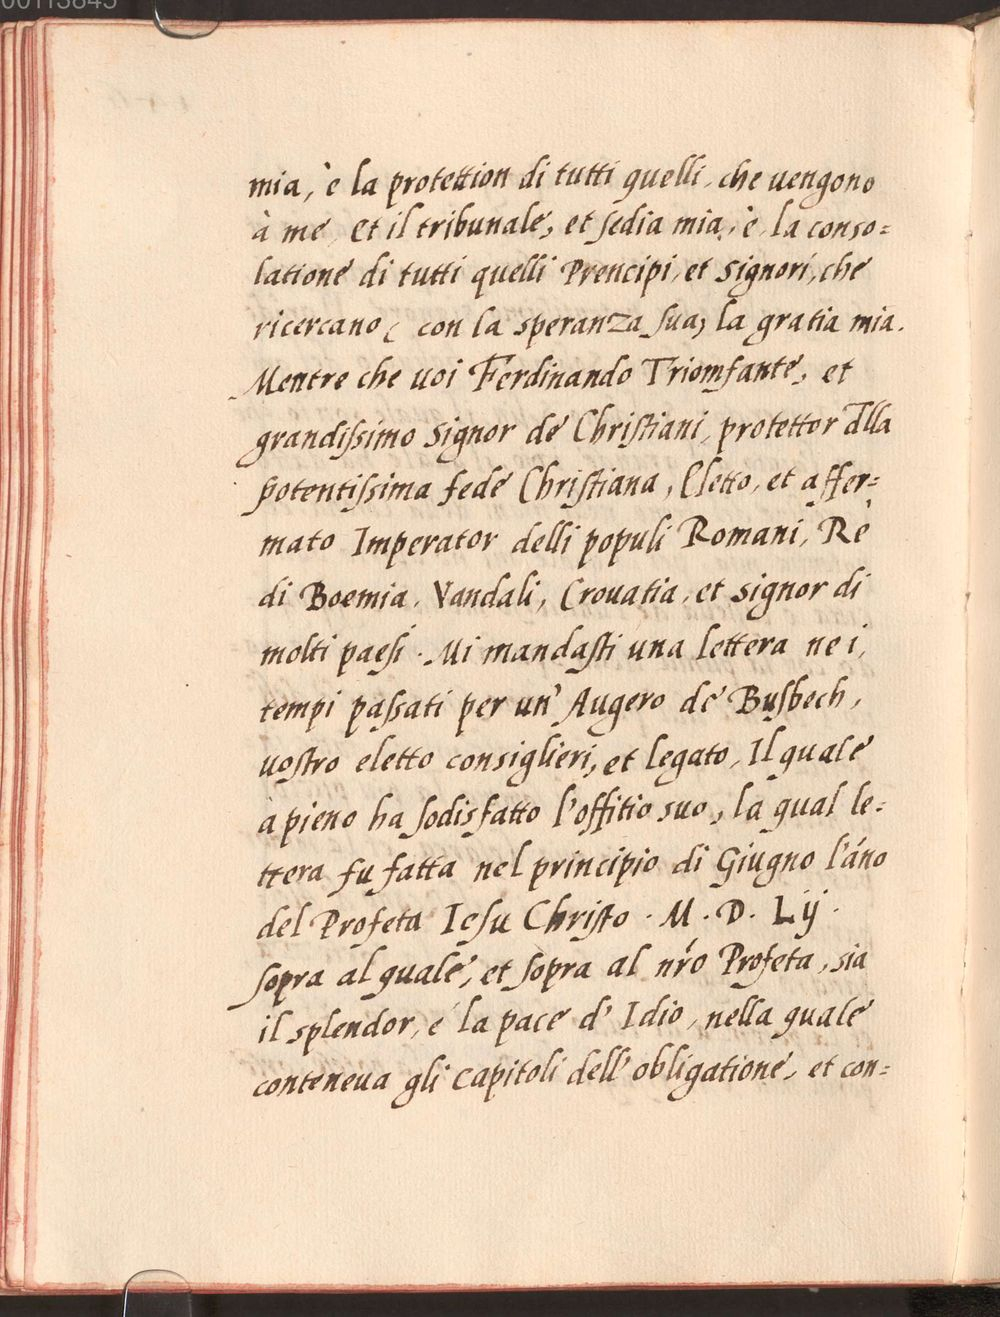 00113845
mia, è la protettion di tutti quelli, che uengono
à me, Et il tribunale, et sedia mia, è, la conso=
latione di tutti quelli Prencipi, et Signori, che
ricercano, con la speranza sua, la gratia mia.
Mentre che uoi Ferdinando Triomfante, et
grandissimo Signor de Christiani, protettor d̄lla
potentissima fede Christiana, Eletto, et affer=
mato Imperator delli populi Romani, Rè
di Boemia, Vandali, Crouatia, et signor di
molti paesi. Mi mandasti una lettera ne i,
tempi passati per un' Augero de Busbech,
uostro eletto consiglieri, et legato, Il quale
à pieno ha sodisfatto l'offitio suo, la qual le=
ttera fu fatta nel principio di Giugno l'áno
del Profeta Iesu Christo. M. D. Lij.
sopra al quale, et sopra al nr̃o Profeta, sia
il splendor, e la pace d' Idio, nella quale
conteneua gli capitoli dell' obligatione, et con=